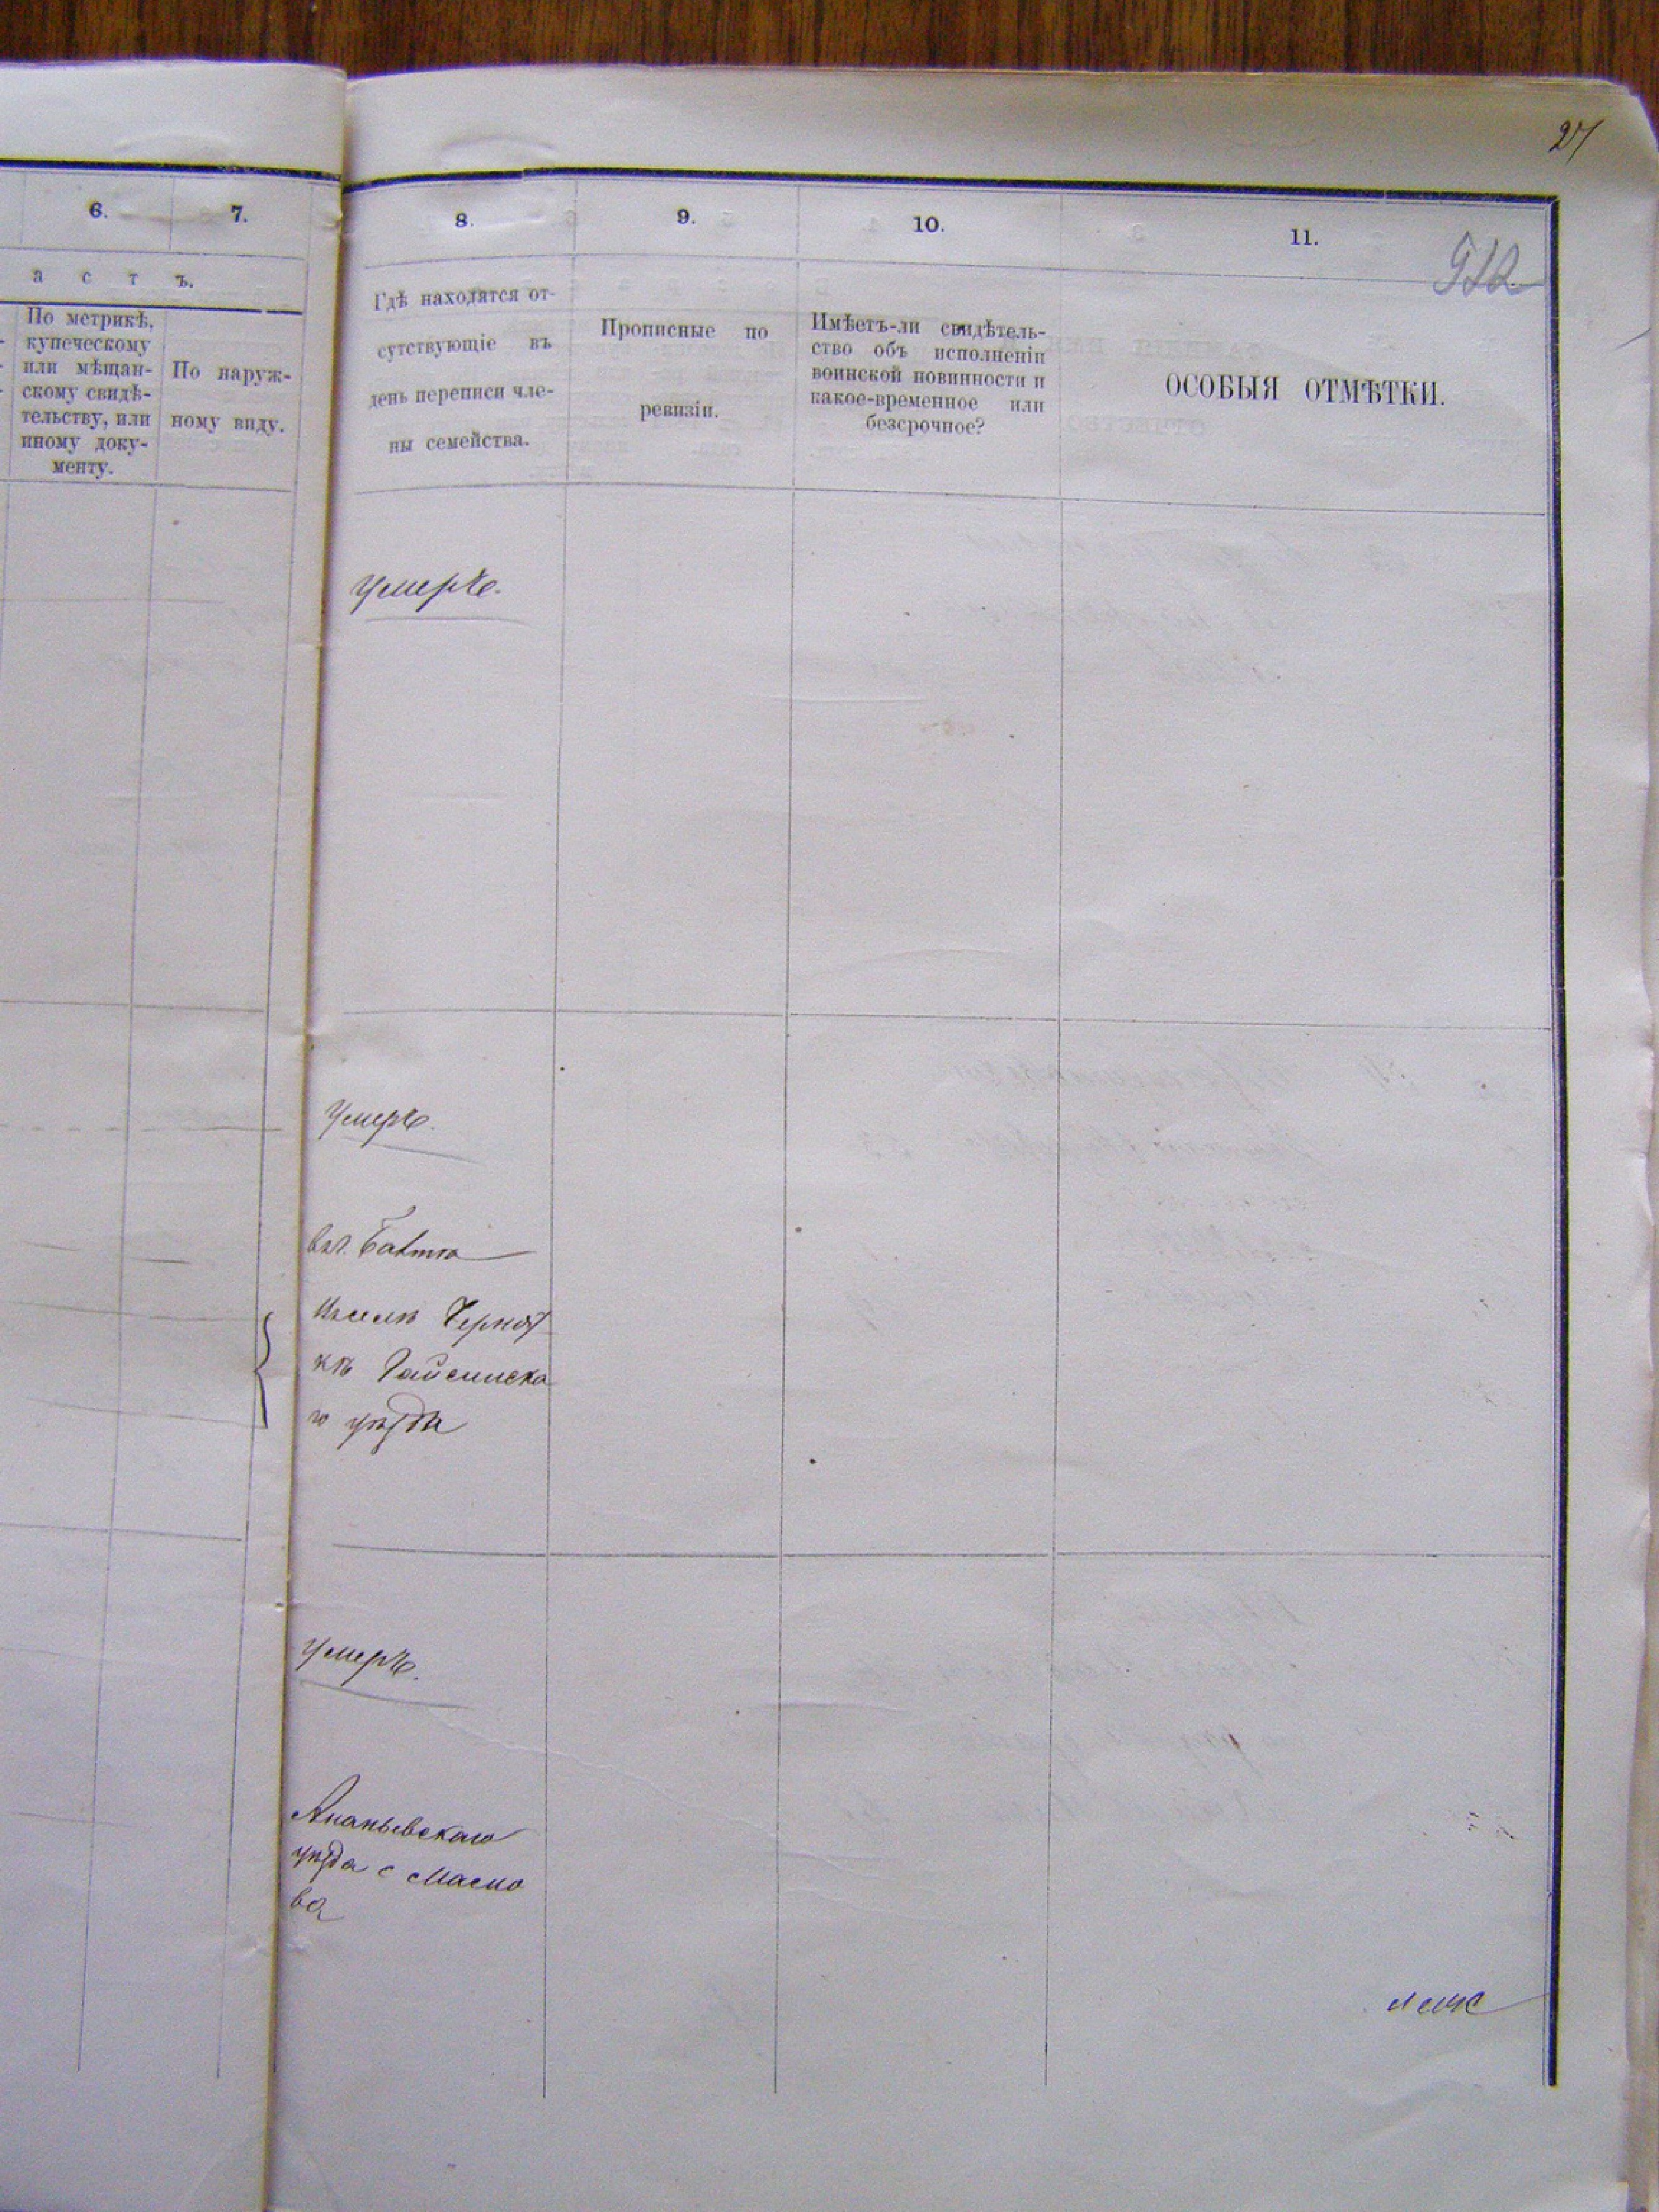 27
6.
7.
8.
9.
10.
11.
а с т ъ.
По метрикѣ,
купеческому
или мѣщан-
скому свидѣ-
тельству, или
иному доку-
менту.
По наруж-
ному виду.
Гдѣ находятся от-
сутствующіе въ
день переписи чле-
ны семейства.
Прописные по
ревизіи.
Имѣетъ-ли свидѣтель-
ство объ исполненіи
воинской повинности и
какое-временное или
безсрочное?
ОСОБЫЯ ОТМѢТКИ.
умеръ.
Умеръ.
Балта
Гайсинска
го уѣзда
умеръ.
Ананьевскаго
уѣзда с